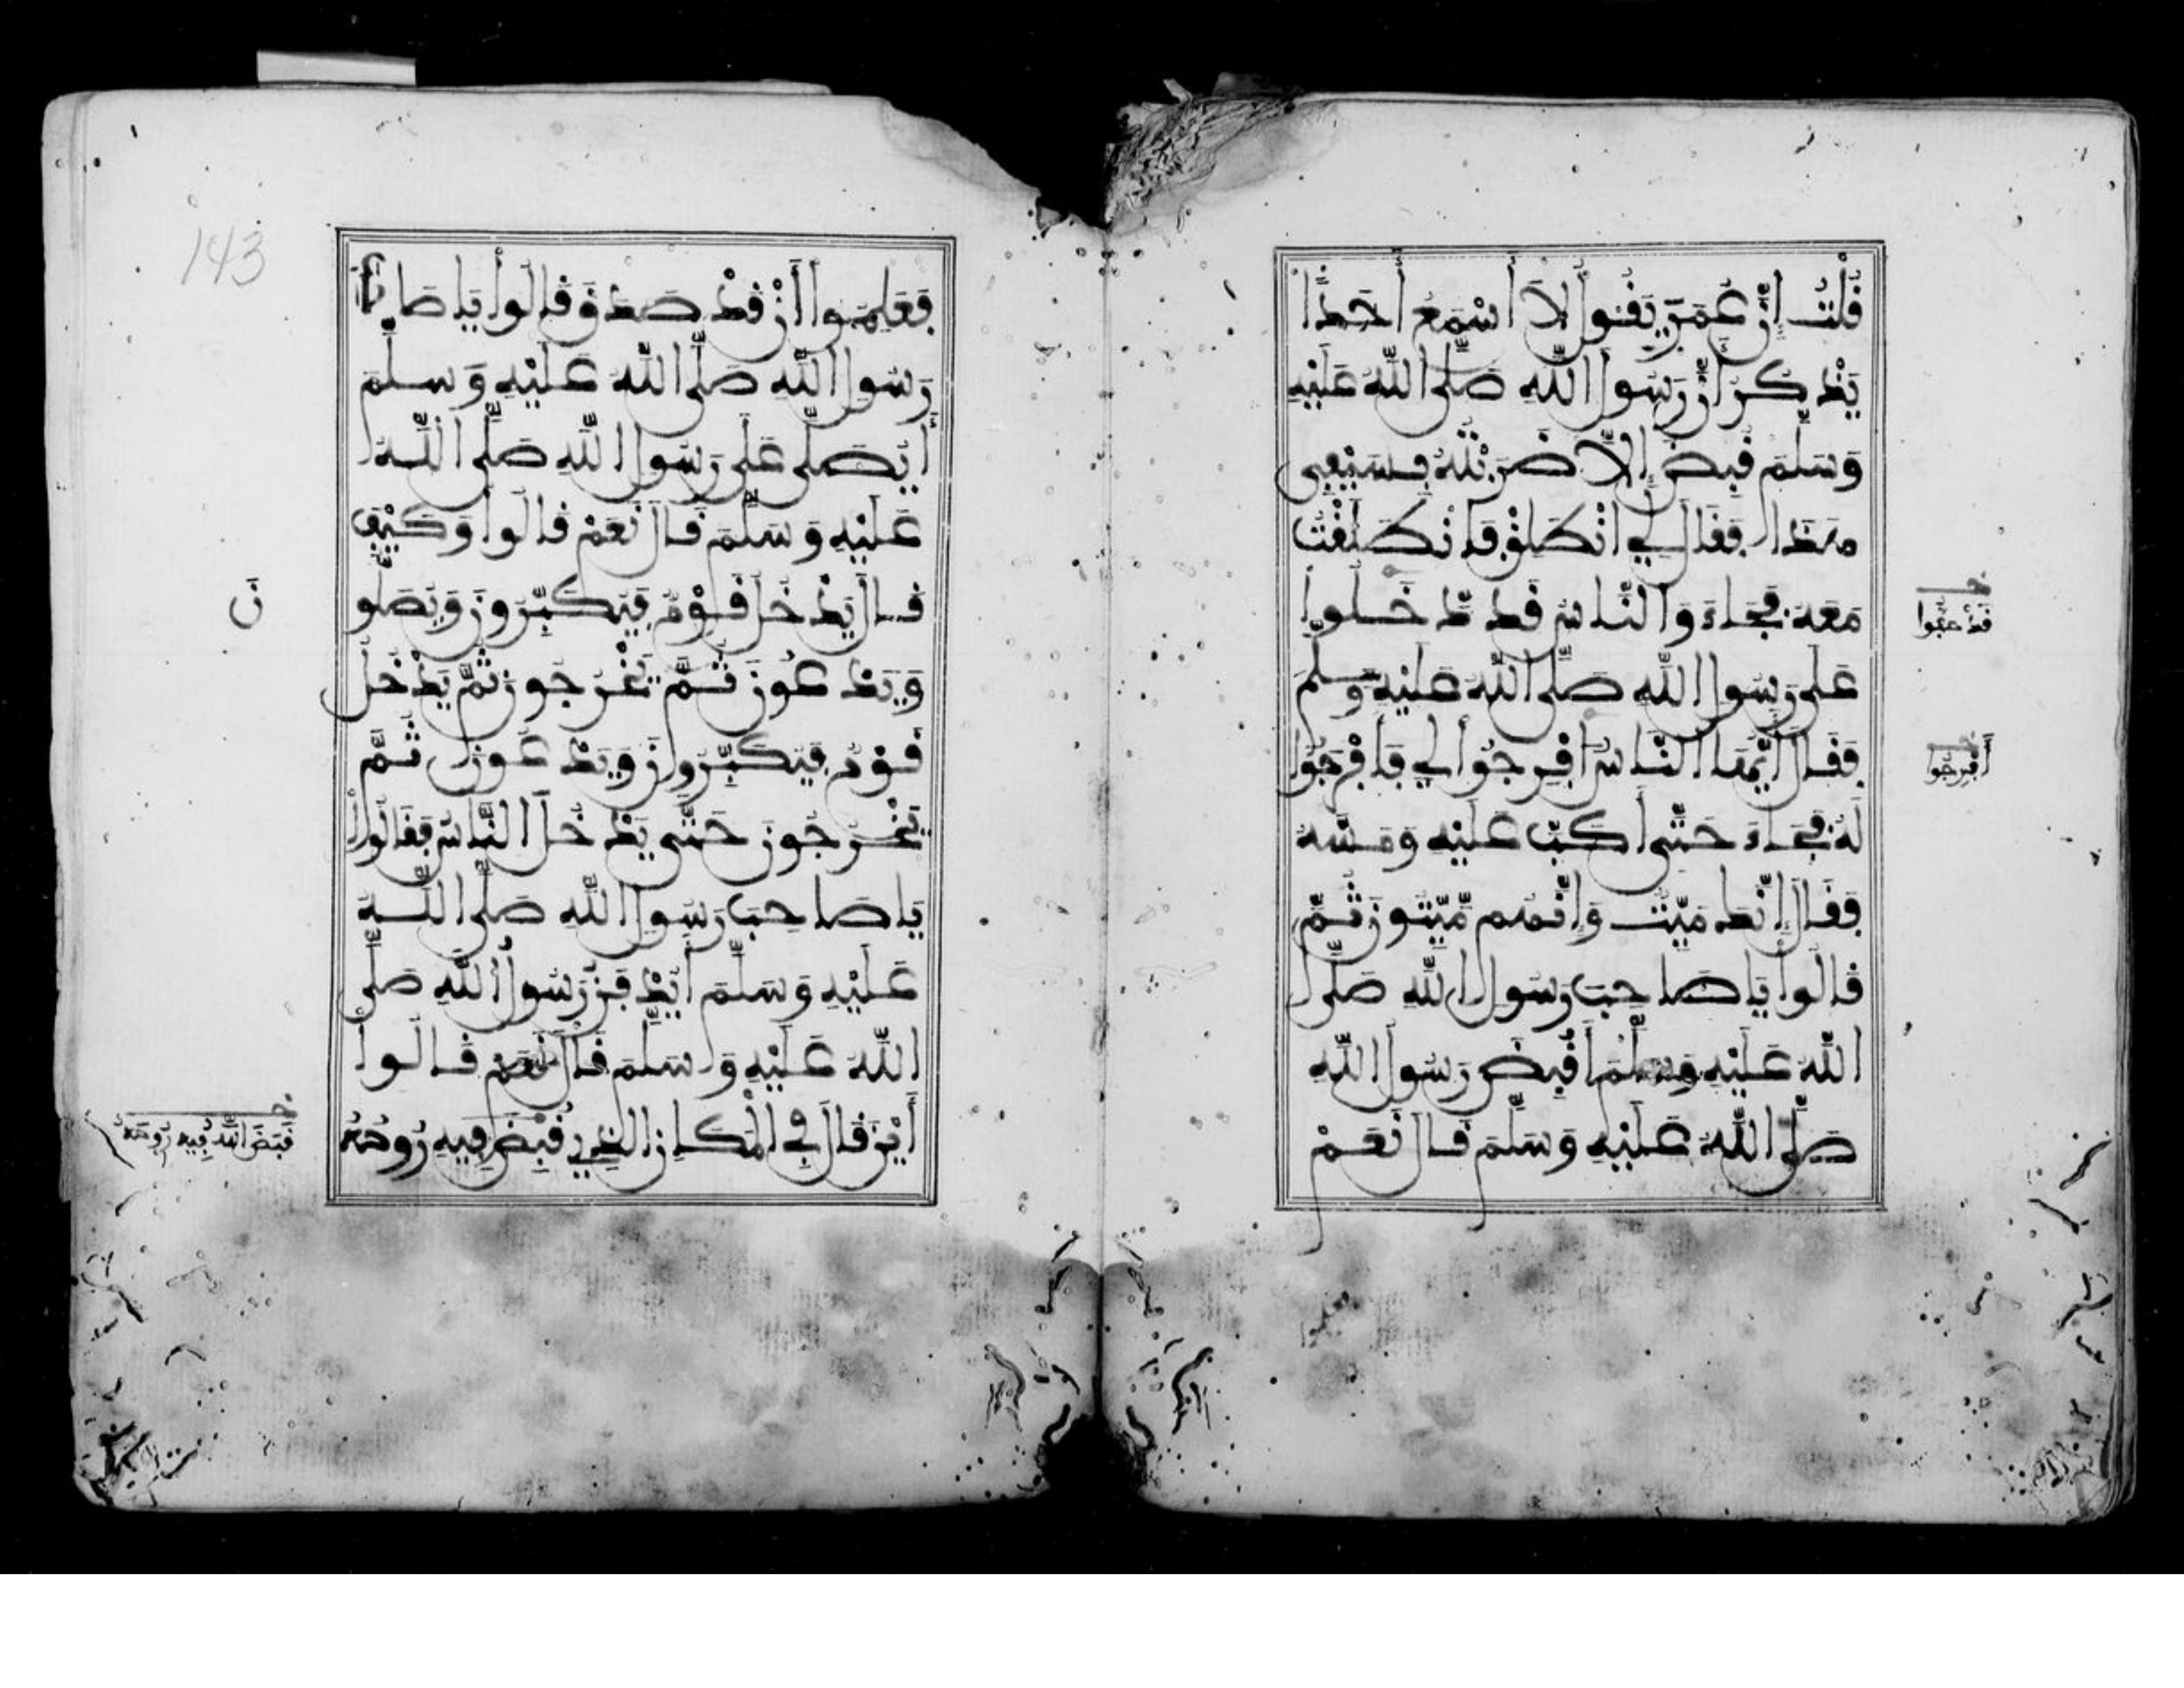 قُلْتُ إِنَّ عُمَرَ يَقُولُ لَا أَسْمَعُ أَحَدًا
يَذْكُرُ أَنَّ رَسُولَ اللَّهِ صَلَّى اللَّهُ عَلَيْهِ
وَسَلَّمَ قُبِضَ إِلَّا ضَرَبْتُهُ بِسَيْفِي
هَذَا فَقَالَ لِي انْطَلِقْ فَانْطَلَقْتُ
مَعَهُ فَجَاءَ وَالنَّاسُ قَدْ دَخَلُوا
عَلَى رَسُولِ اللَّهِ صَلَّى اللَّهُ عَلَيْهِ وَسَلَّمَ
فَقَالَ أَيُّهَا النَّاسُ أَفْرِجُوا لِي فَأَفْرَجُوا
لَهُ فَجَاءَ حَتَّى أَكَبَّ عَلَيْهِ وَمَسَّهُ
فَقَالَ إِنَّكَ مَيِّتٌ وَإِنَّهُم مَّيِّتُونَ ثُمَّ
قَالُوا يَا صَاحِبَ رَسُولِ اللَّهِ صَلَّى
اللَّهُ عَلَيْهِ وَسَلَّمَ أَقُبِضَ رَسُولُ اللَّهِ
صَلَّى اللَّهُ عَلَيْهِ وَسَلَّمَ قَالَ نَعَمْ
أَفْرِجُوا
143
فَعَلِمُوا أَنْ قَدْ صَدَقَ قَالُوا يَا صَاحِبَ
رَسُولِ اللَّهِ صَلَّى اللَّهُ عَلَيْهِ وَسَلَّمَ
أَيُصَلَّى عَلَى رَسُولِ اللَّهِ صَلَّى اللَّهُ
عَلَيْهِ وَسَلَّمَ قَالَ نَعَمْ قَالُوا وَكَيْفَ
قَالَ يَدْخُلُ قَوْمٌ فَيُكَبِّرُونَ وَيُصَلُّو
نَ
وَيَدْعُونَ ثُمَّ يَخْرُجُونَ ثُمَّ يَدْخُلُ
قَوْمٌ فَيُكَبِّرُونَ وَيَدْعُونَ ثُمَّ
يَخْرُجُونَ حَتَّى يَدْخُلَ النَّاسُ فَقَالُوا
يَا صَاحِبَ رَسُولِ اللَّهِ صَلَّى اللَّهُ
عَلَيْهِ وَسَلَّمَ أَيُدْفَنُ رَسُولُ اللَّهِ صَلَّى
اللَّهُ عَلَيْهِ وَسَلَّمَ قَالَ نَعَمْ قَالُوا
أَيْنَ قَالَ فِي الْمَكَانِ الَّذِي قُبِضَ فِيهِ رُوحُهُ
قَبَضَ اللَّهُ فِيهِ رُوحَهُ